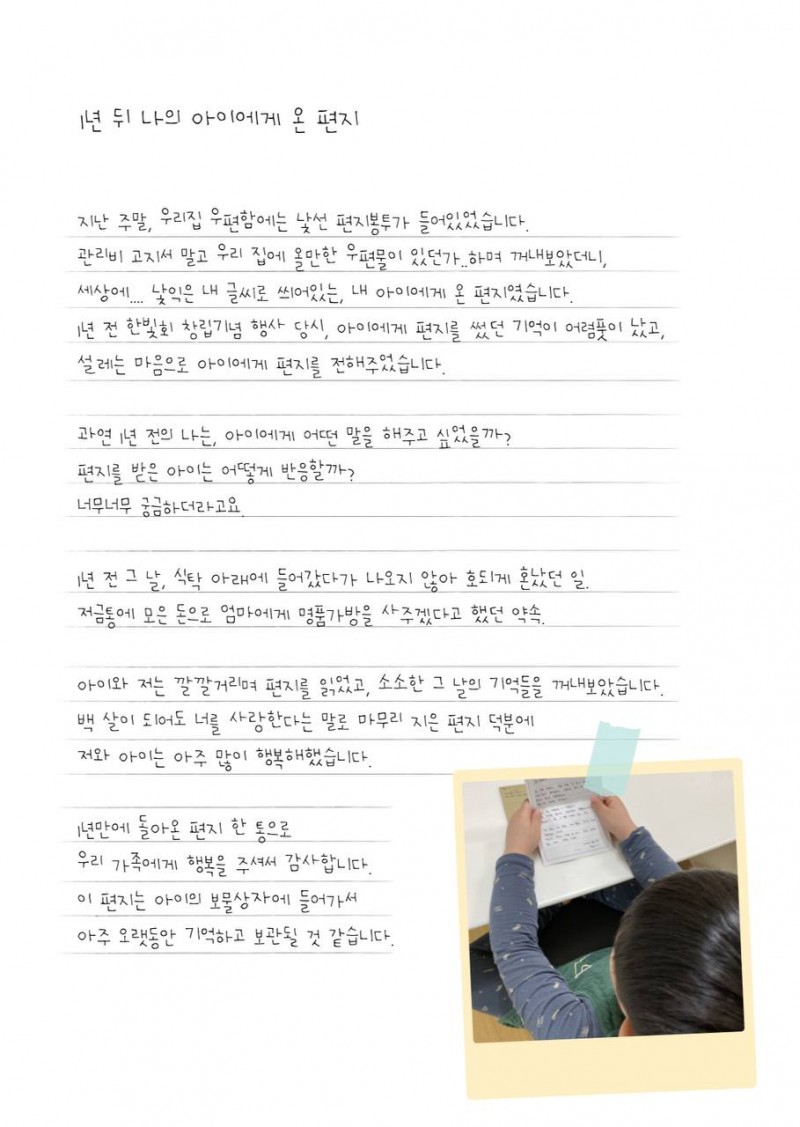 1년 뒤 나의 아이에게 온 편지
지난 주말, 우리집 우편함에는 낯선 편지봉투가 들어있었습니다.
관리비 고지서 말고 우리 집에 올만한 우편물이 있던가..하며 꺼내보았더니,
세상에.... 낯익은 내 글씨로 씌어있는, 내 아이에게 온 편지였습니다.
1년 전 한빛회 창립기념 행사 당시, 아이에게 편지를 썼던 기억이 어렴풋이 났고,
설레는 마음으로 아이에게 편지를 전해주었습니다.
과연 1년 전의 나는, 아이에게 어떤 말을 해주고 싶었을까?
편지를 받은 아이는 어떻게 반응할까?
너무너무 궁금하더라고요.
1년 전 그 날, 식탁 아래에 들어갔다가 나오지 않아 호되게 혼났던 일.
저금통에 모은 돈으로 엄마에게 명품가방을 사주겠다고 했던 약속.
아이와 저는 깔깔거리며 편지를 읽었고, 소소한 그 날의 기억들을 꺼내보았습니다.
백 살이 되어도 너를 사랑한다는 말로 마무리 지은 편지 덕분에
저와 아이는 아주 많이 행복해했습니다.
1년만에 돌아온 편지 한 통으로
우리 가족에게 행복을 주셔서 감사합니다.
이 편지는 아이의 보물상자에 들어가서
아주 오랫동안 기억하고 보관될 것 같습니다.